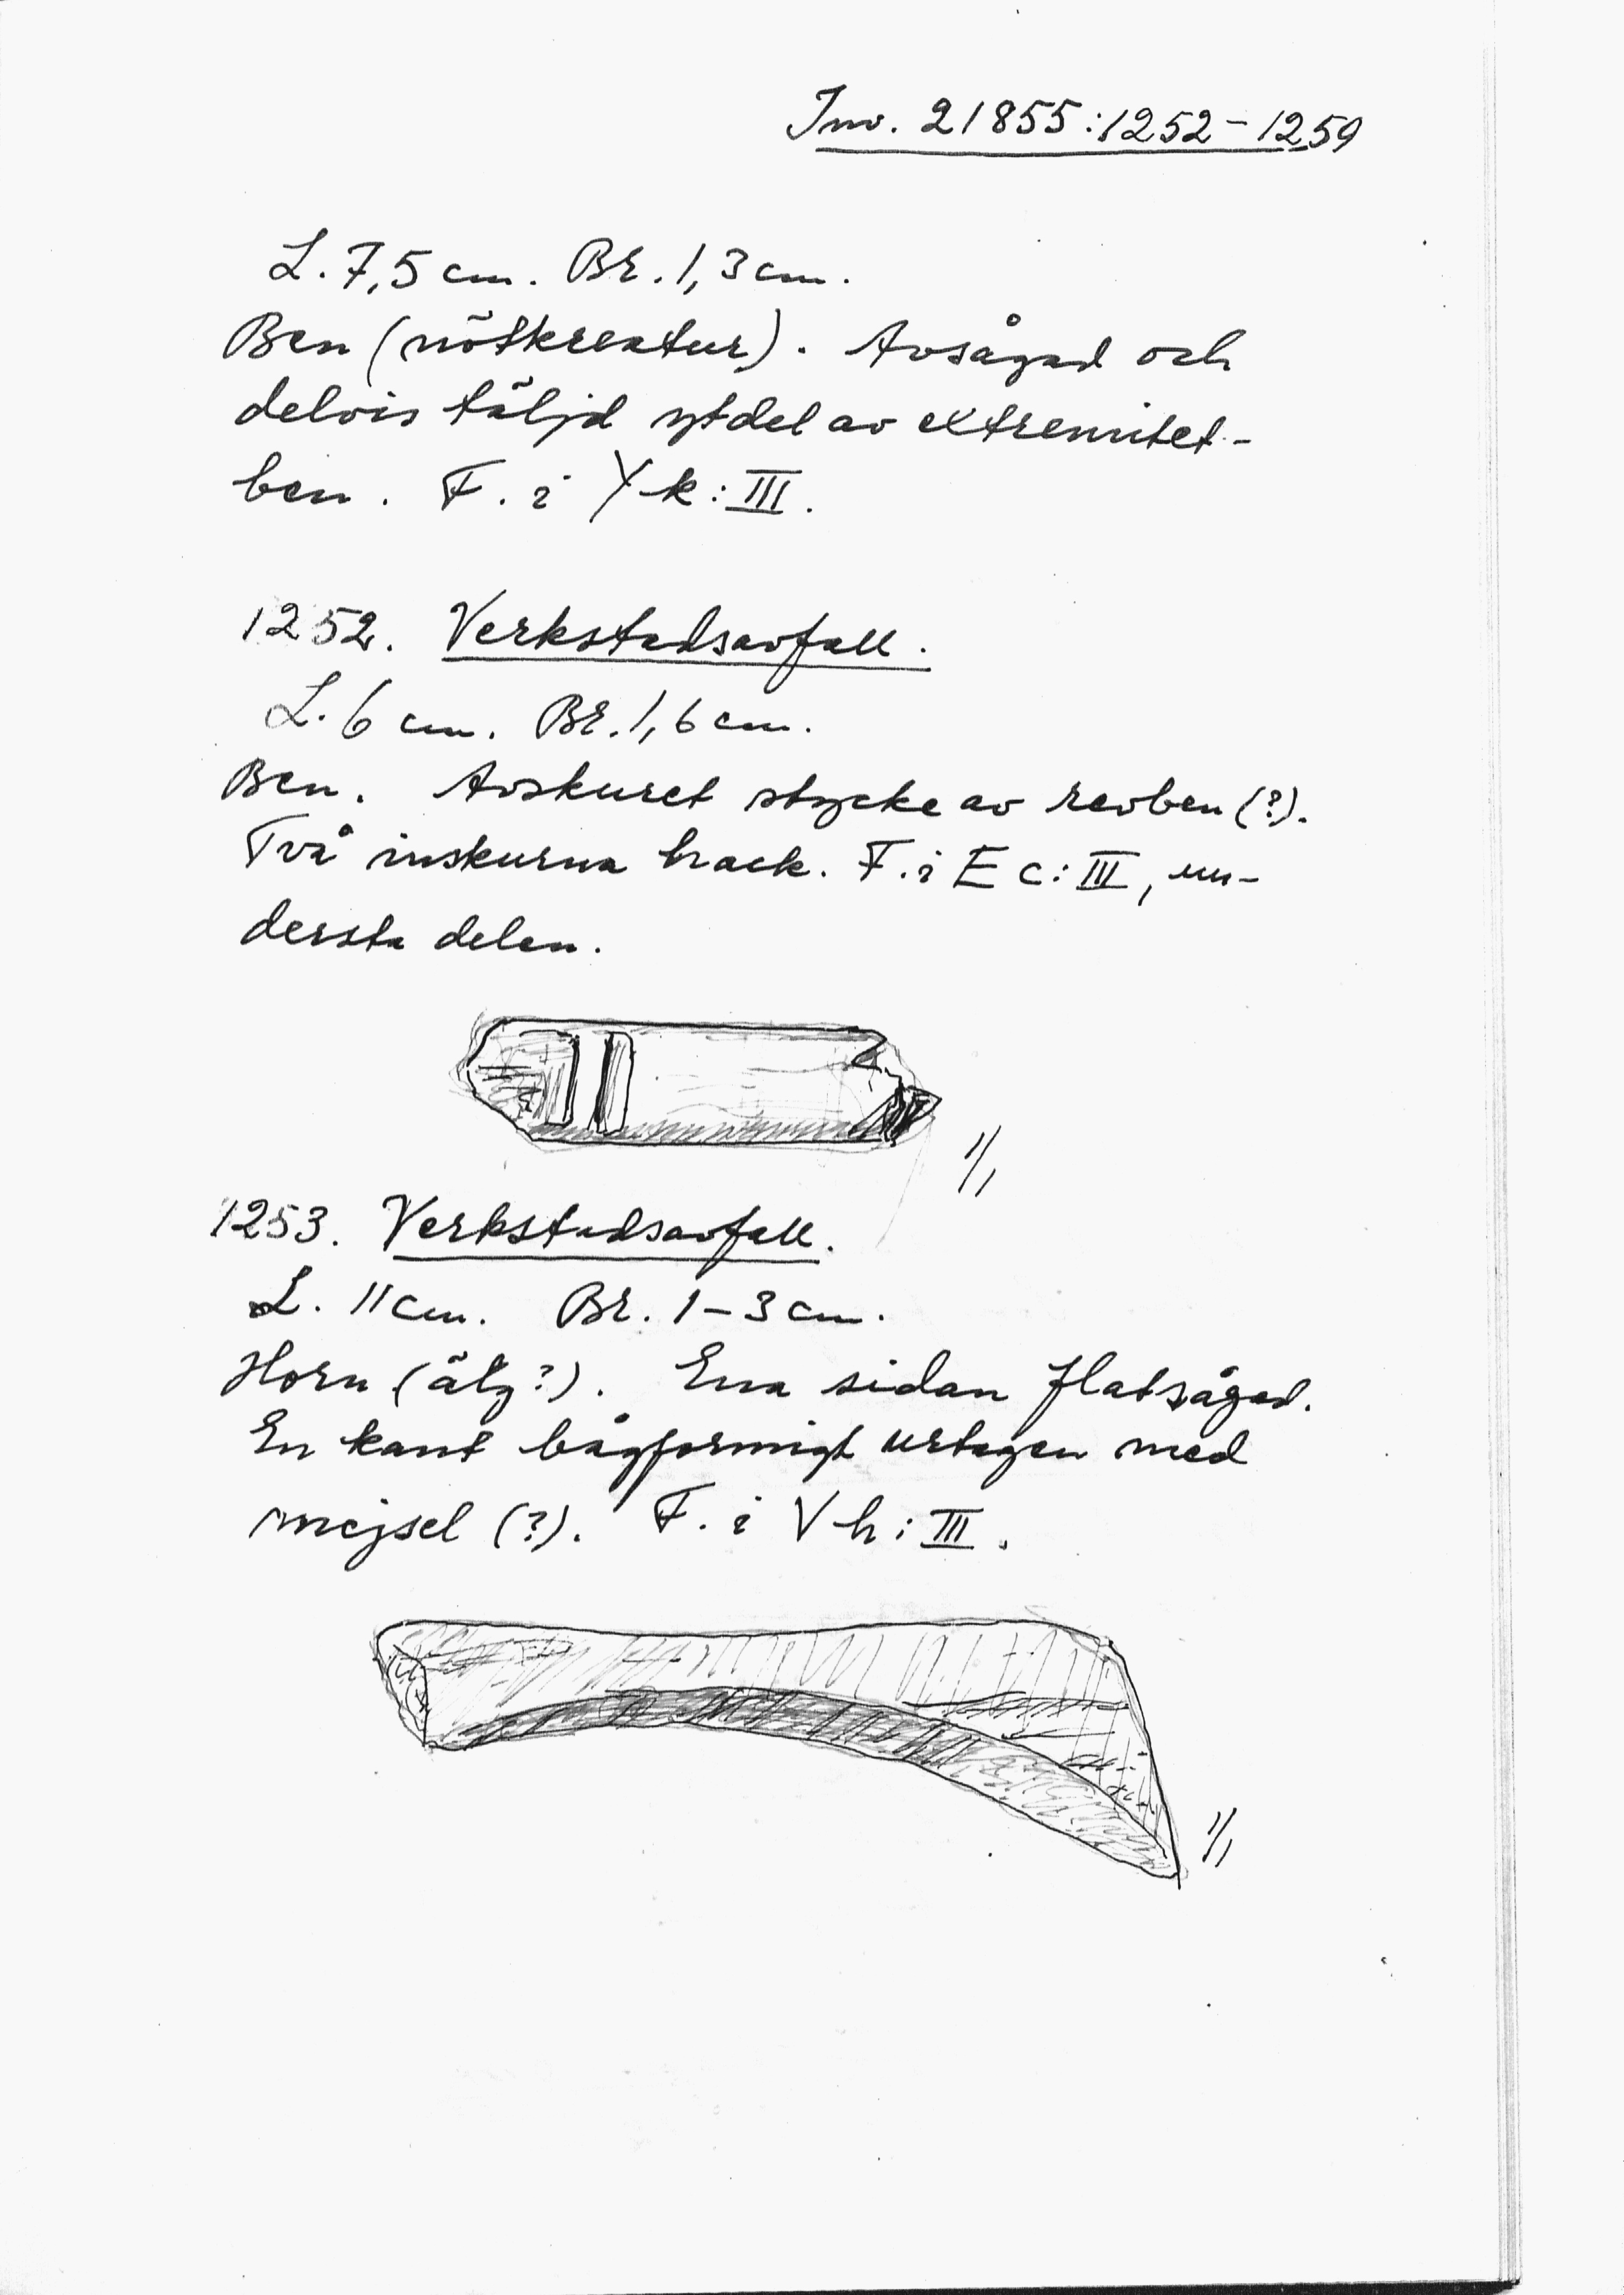 Inv. 21855:1252-1259
L. 7,5 cm. Br. 1,3 cm.
Ben (nötkreatur). Avsågad och
delvis täljd ytdel av extremitet-
ben. F. i Y k:III.
1252. Verkstadsavfall.
L. 6 cm. Br. 1,6 cm.
Ben. Avskuret stycke av revben (?).
Två inskurna hack. F. i E c:III, un-
dersta delen.
1/1
1253. Verkstadsavfall.
L. 11 cm. Br. 1-3 cm.
Horn (älg?). Ena sidan flatsågad.
En kant bågformigt urtagen med
mejsel (?). F. i V h:III.
1/1